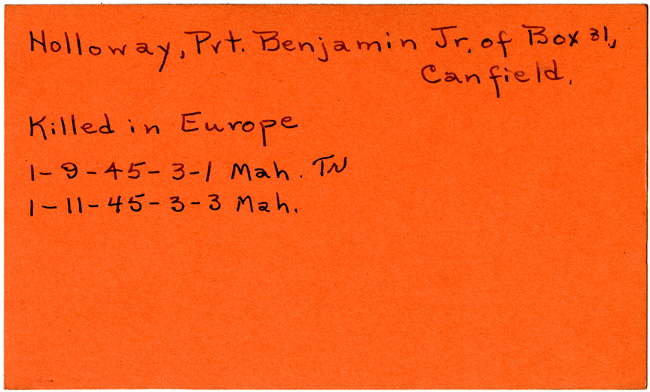 Holloway, Pvt. Benjamin Jr. of Box 31,
Canfield.
Killed in Europe
1-9-45-3-1 Mah. TN
1-11-45-3-3 Mah.